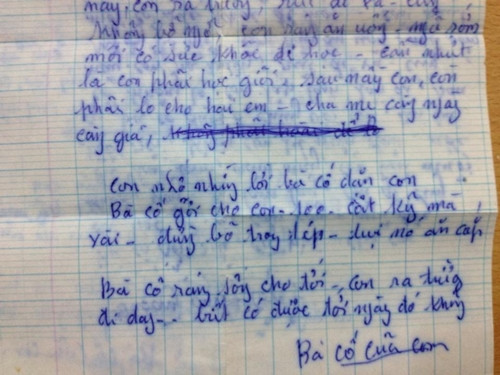 này, con ra trường,
không bỏ ngủ con rán ăn uống - ngủ sớm
mới có sức khỏe đi học - cần nhứt
là con phải học giỏi, sau nầy con, con
phải lo cho hai em - cha mẹ càng ngày
càng già,
Con nhớ những lời bà cố dặn con
Bà cố gởi cho con - cất kỹ mà
xài - đừng bỏ tụi nó ăn cắp
Bà cố ráng sống cho tới - con ra trường
đi dạy - biết có được tới ngày đó không
Bà cố của con